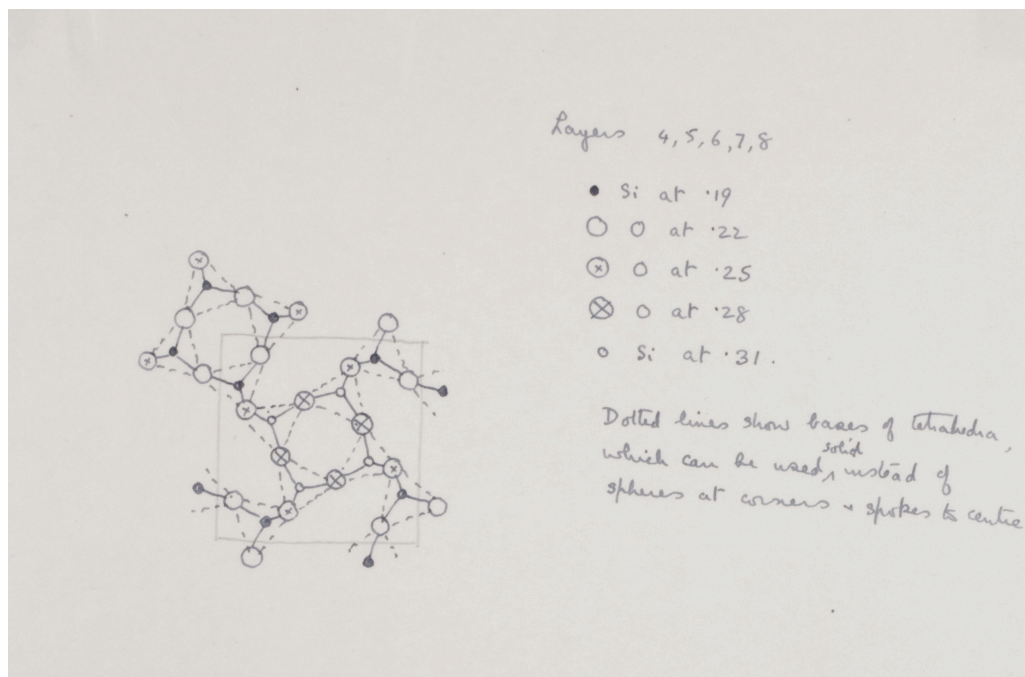 Layers 4, 5, 6, 7, 8
Si at ·19
O at ·22
O at ·25
O at ·28
Si at ·31.
Dotted lines show bases of tetrahedra,
which can be used, solid instead of
spheres at corners + spokes to centre